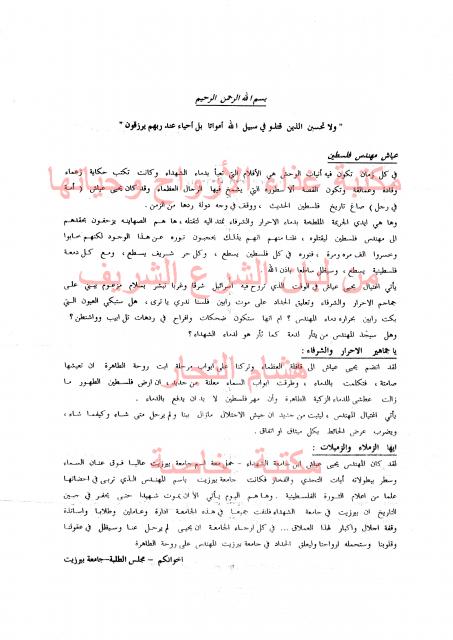 بسم الله الرحمن الرحيم
" ولا تحسبن الذين قتلو في سبيل الله أمواتا بل أحياء عند ربهم يرزقون "
عياش مهندس فلسطين
في كل زمان تكون فيه أنياب الوحش هي الأقلام التي تعبأ بدماء الشهداء وكانت تكتب حكاية زعماء
وقادة وعمالقة وتكون القصة الأسطورة التي يشمخ فيها الرجال العظماء وقد كان يحيى عياش ( أمة
في رجل ) صاغ تاريخ فلسطين الحديث ، ووقف في وجه دولة ردها من الزمن .
وها هي ايدي الجريمة الملطخة بدماء الاحرار والشرفاء تمتد اليه لتقتله ، ها هم الصهاينه يزحفون بحقدهم
الى مهندس فلسطين ليقتلوه ، ظنا منهم انهم بذلك يحجبون نوره عن هذا الوجود لكنهم خابوا
وخسروا الف مره ومرة ، فنوره في كل فلسطين يسطع ، وكل حر شريف يسطع ، ومع كل دمعة
فلسطينية يسطع ، وسيظل ساطعا باذن الله .
يأتي اغتيال يحيى عياش في الوقت الذي تروح فيه اسرائيل شرقا وغربا تبشر بسلام مزعوم يبنى على
جماجم الاحرار والشرفاء وتعليق الحداد على موت رابين فلسنا ندري يا ترى ، هل ستبكي العيون التي
بكت رابين بحراره دماء المهندس ؟ ام انها ستكون ضحكات وافراح في ردهات تل ابيب وواشنطن؟
وهل سيجد المهندس من يثأر لدمه كما ثأر هو لدماء الشهداء؟
يا جماهير الاحرار والشرفاء :
لقد انضم يحيى عياش الى قافلة العظماء وتركنا على ابواب مرحلة ابت روحة الطاهرة ان تعيشها
صامتة ، فتكلمت بالدماء ، وطرقت ابواب السماء معلنة من جديد ، ان ارض فلسطين الطهور ما
زالت عطشى للدماء الزكية الطاهرة وأن مهر فلسطين لا بد ان يدفع بالدماء .
يأتي اغتيال المهندس ، ليثبت من جديد ان جيش الاحتلال مازال بيننا ولم يرحل متى شاء وكيفما شاء ،
ويضرب عرض الحائط بكل ميثاق او اتفاق .
ايها الزملاء والزميلات :
لقد كان المهندس يحيى عياش ابن جامعة الشهداء - حمل معه اسم جامعة بيرزيت عاليا فوق عنان السماء
وسطر ببطولاته أيات التحدي والفخار فكانت جامعة بيرزيت باسم المهندس الذي تربى في احضانها
علما من اعلام الثورة الفلسطينية . وها هو اليوم يأتي الآن بموت شهيدا حتى يحفر في سجين
التاريخ ان بيرزيت هي جامعة الشهداء فلنقف جميعا في هذه الجامعة ادارة وعاملين وطلابا واساتذة
وقفة اجلال واكبار لهذا العملاق ... في كل ارجاء الجامعة ان يحيى لم يرحل عنا وسيظل في عقولنا
وقلوبنا وستحمله ارواحنا وليعلق الحداد في جامعة بيرزيت للمهندس على روحة الطاهرة
اخوانكم - مجلس الطلبة - جامعة بيرزيت
مكتبة غذاء الأرواح وحياتها
من لبنان الشرع الشريف
هشام النجار
مكتبة خاصة